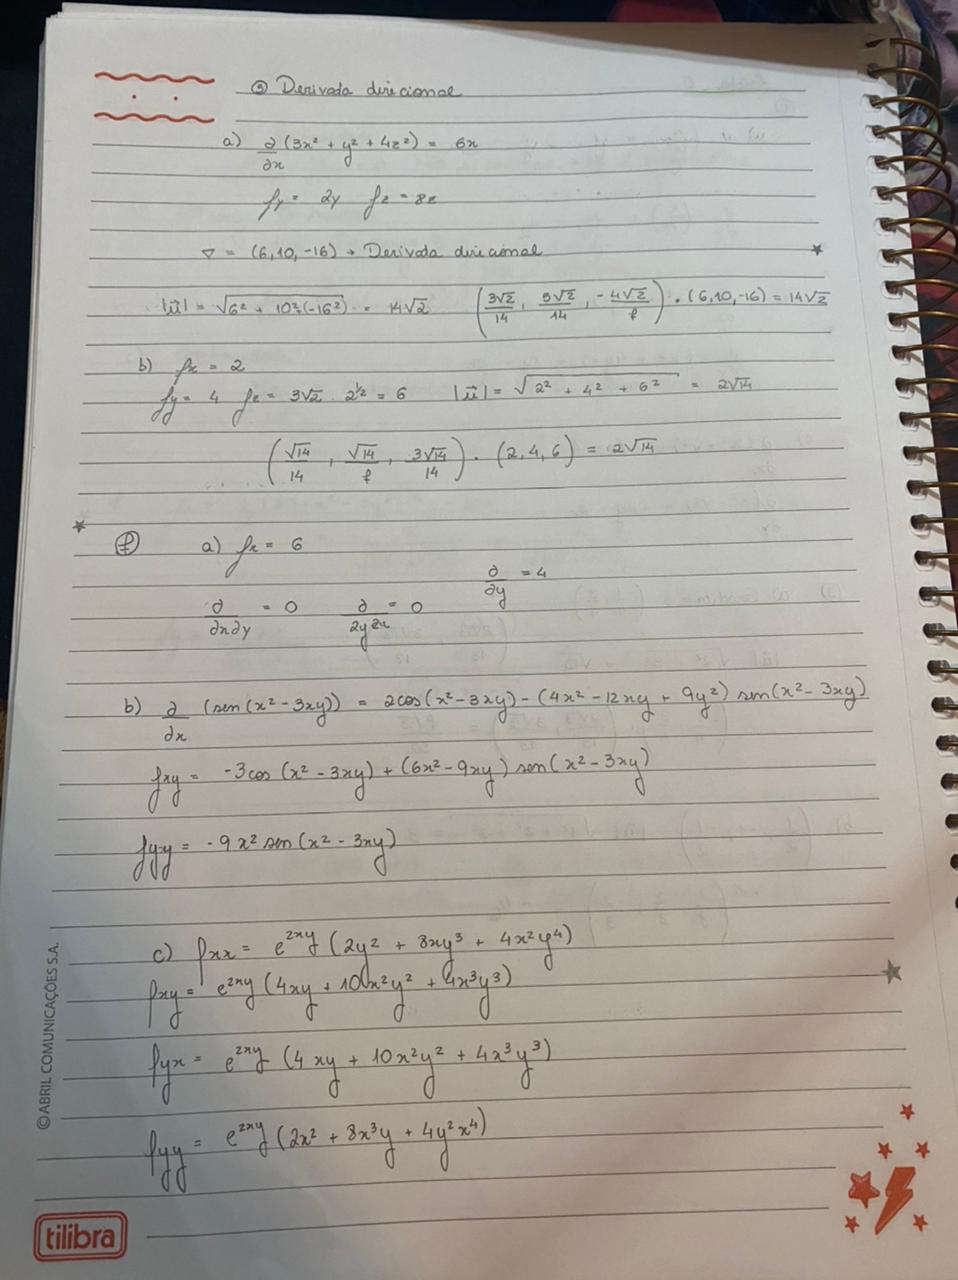 ⑤ Derivada direcional
a) ∂/∂x (3x² + y² + 4z²) = 6x
fy = 2y fz = 8z
∇ = (6,10,-16) → Derivada direcional
|ū| = √6² + 10²+(-16²) = 14√2 (3√2/14, 5√2/14, -4√2/7) . (6,10,-16) = 14√2
b) fx = 2
fy = 4 fz = 3√2 . 2^½ = 6 |ū| = √2² + 4² + 6² = 2√14
(√14/14, √14/7, 3√14/14) . (2,4,6) = 2√14
⑦ a) fx = 6
∂/∂y = 4
∂/∂x∂y = 0 ∂/∂y∂x = 0
b) ∂/∂x (sen(x² - 3xy)) = 2cos(x² - 3xy) - (4x² - 12xy + 9y²) sen(x² - 3xy)
fxy = -3cos (x² - 3xy) + (6x² - 9xy) sen(x² - 3xy)
fyy = -9x² sen(x² - 3xy)
c) fxx = e^2xy (2y² + 8xy³ + 4x²y⁴)
fxy = e^2xy (4xy + 10x²y² + 4x³y³)
fyx = e^2xy (4xy + 10x²y² + 4x³y³)
fyy = e^2xy (2x² + 8x³y + 4y²x⁴)
© ABRIL COMUNICAÇÕES S.A.
tilibra